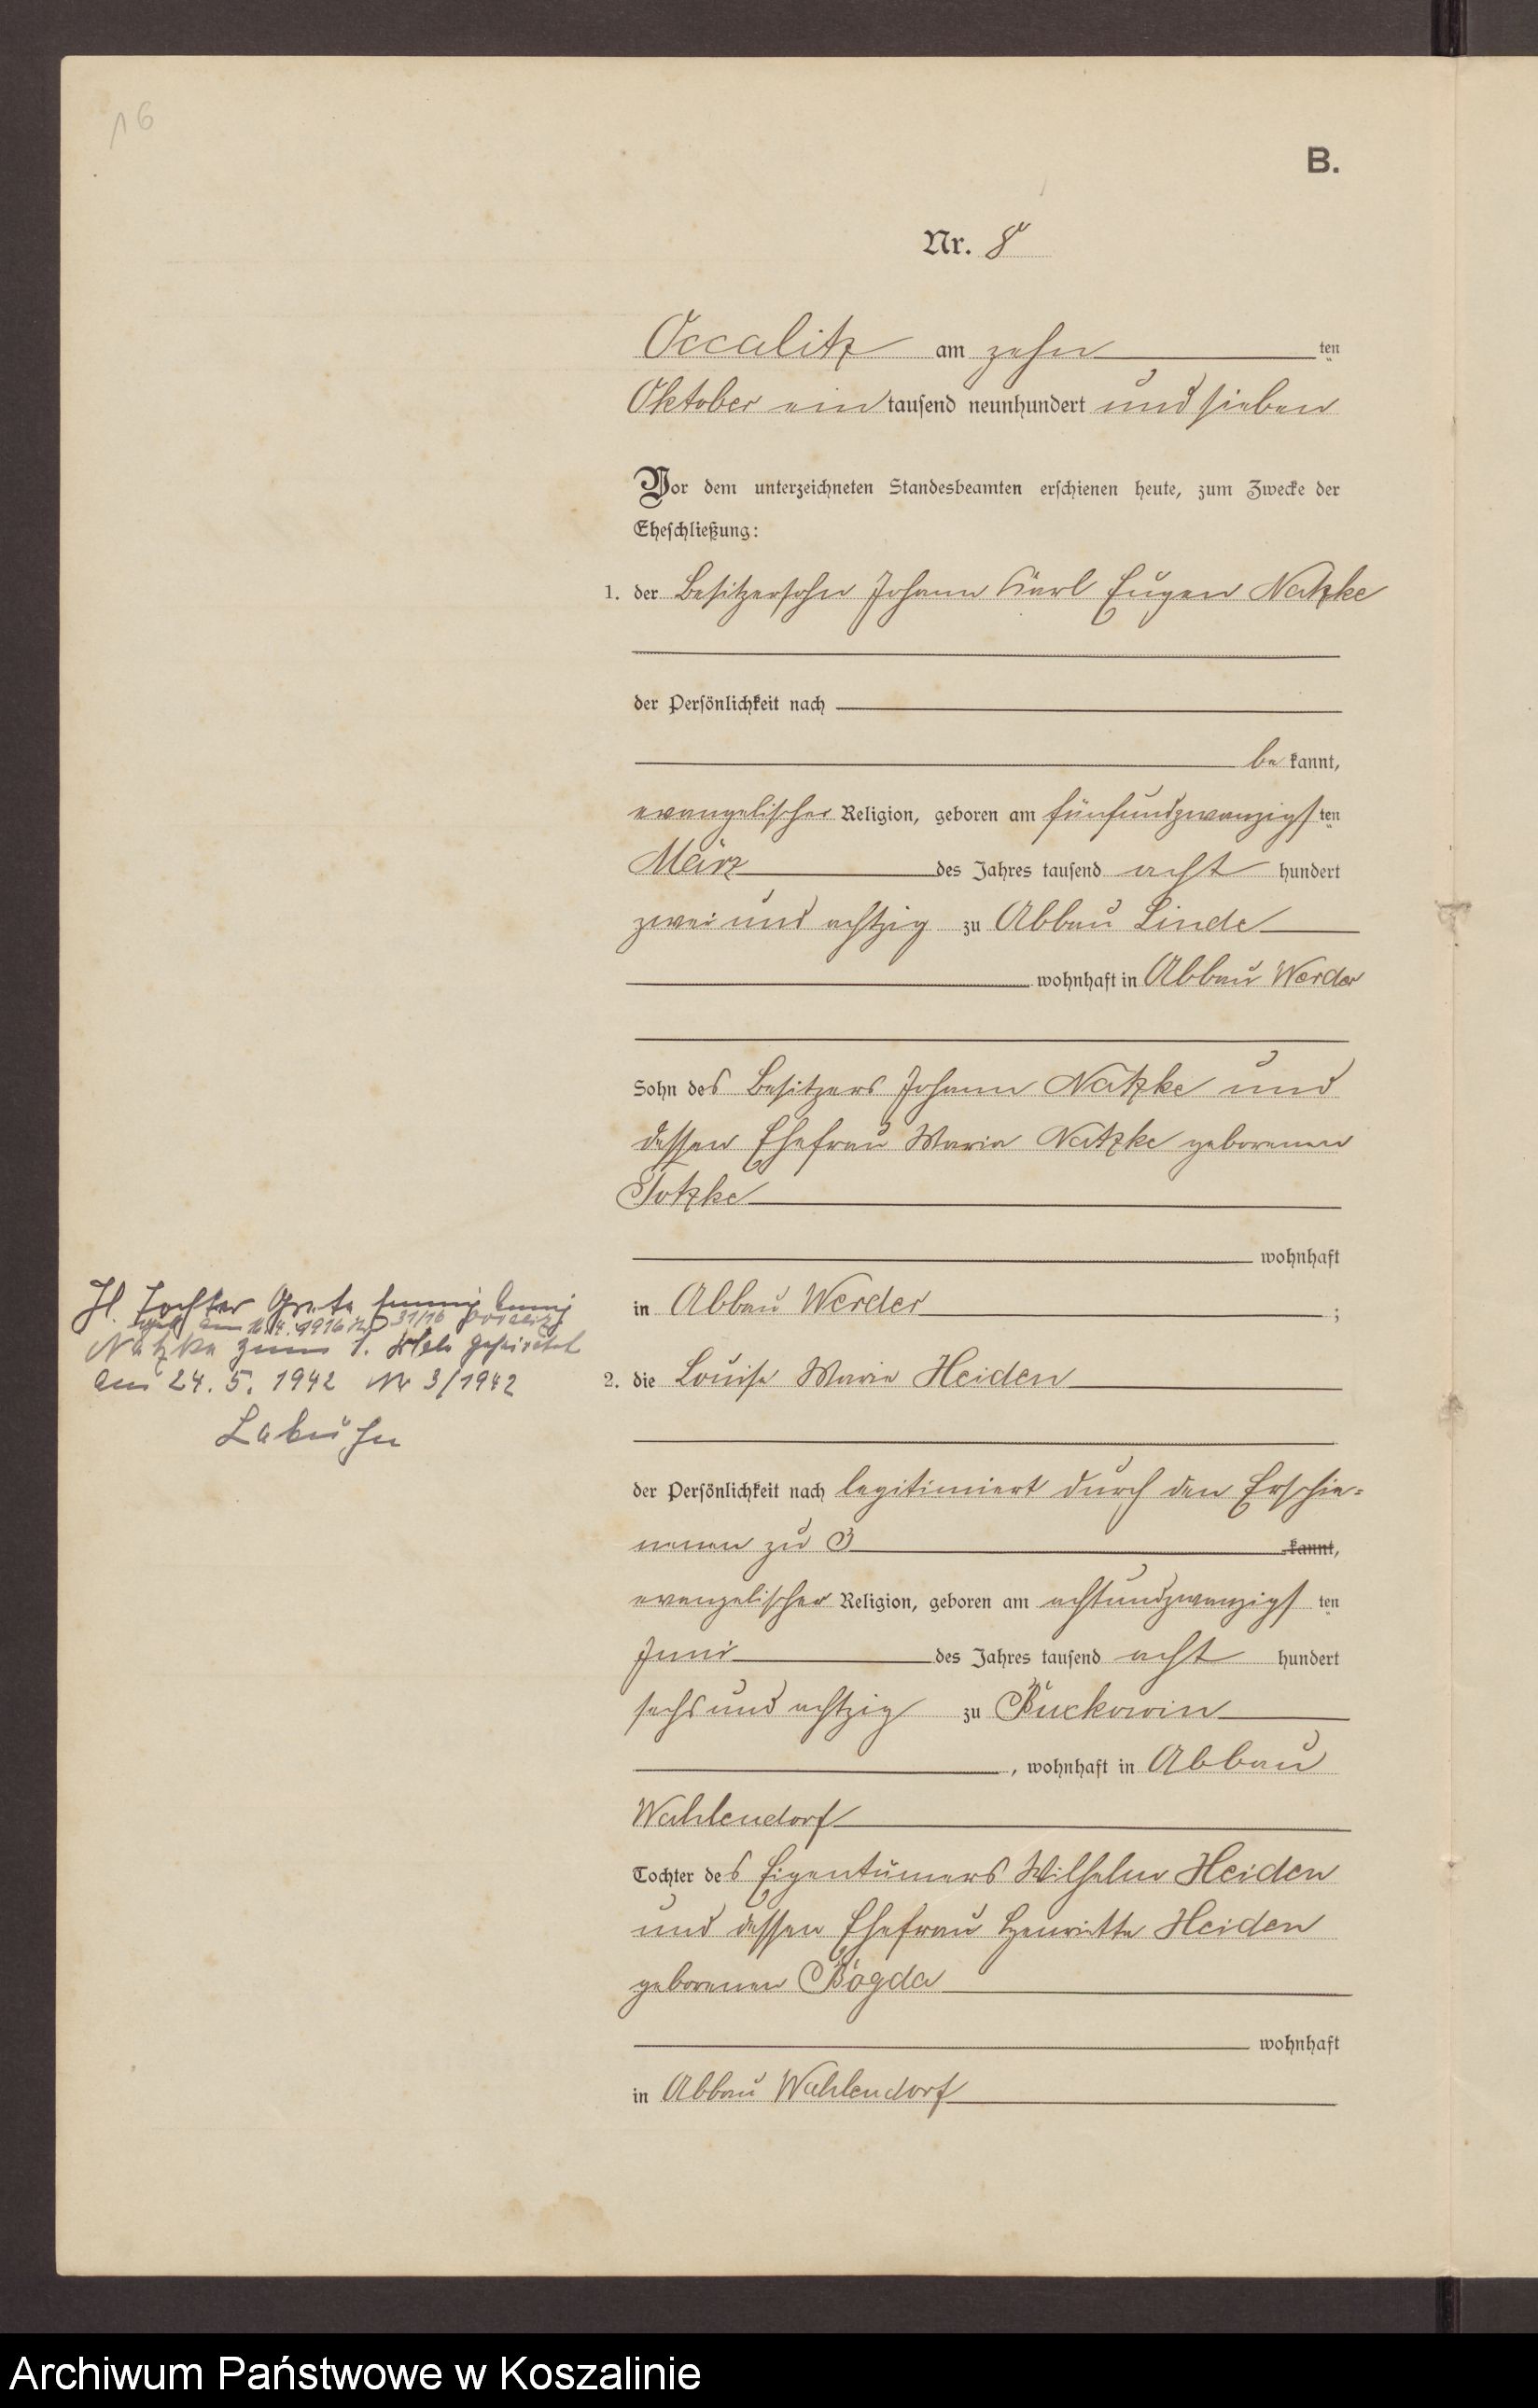 16
B.
Nr. 8
Occalitz am zehn ten
Oktober ein tausend neunhundert und sieben
Vor dem unterzeichneten Standesbeamten erschienen heute, zum Zwecke der
Eheschließung:
1. der Besitzersohn Johann Karl Eugen Natzke
der Persönlichkeit nach
be kannt,
evangelischer Religion, geboren am fünfundzwanzigs ten
März des Jahres tausend acht hundert
zwei und achtzig zu Abbau Linde
wohnhaft in Abbau Werder
Sohn des Besitzers Johann Natzke und
dessen Ehefrau Maria Natzke geborenen
Totzke
wohnhaft
in Abbau Werder ;
2. die Louise Maria Heiden
der Persönlichkeit nach legitimiert durch den Erschie=
nenen zu 3 kannt,
evangelischer Religion, geboren am achtundzwanzigs ten
Juni des Jahres tausend acht hundert
sechs und achtzig zu Buckowin
, wohnhaft in Abbau
Wahlendorf
Tochter des Eigentümers Wilhelm Heiden
und dessen Ehefrau Henriette Heiden
geborenen Bogda
wohnhaft
in Abbau Wahlendorf
Tochter Grete
am 1916 31/16
Natzke zum 1. geheiratet
am 24. 5. 1942 Nr 3/1942
Labuhn
Archiwum Państwowe w Koszalinie